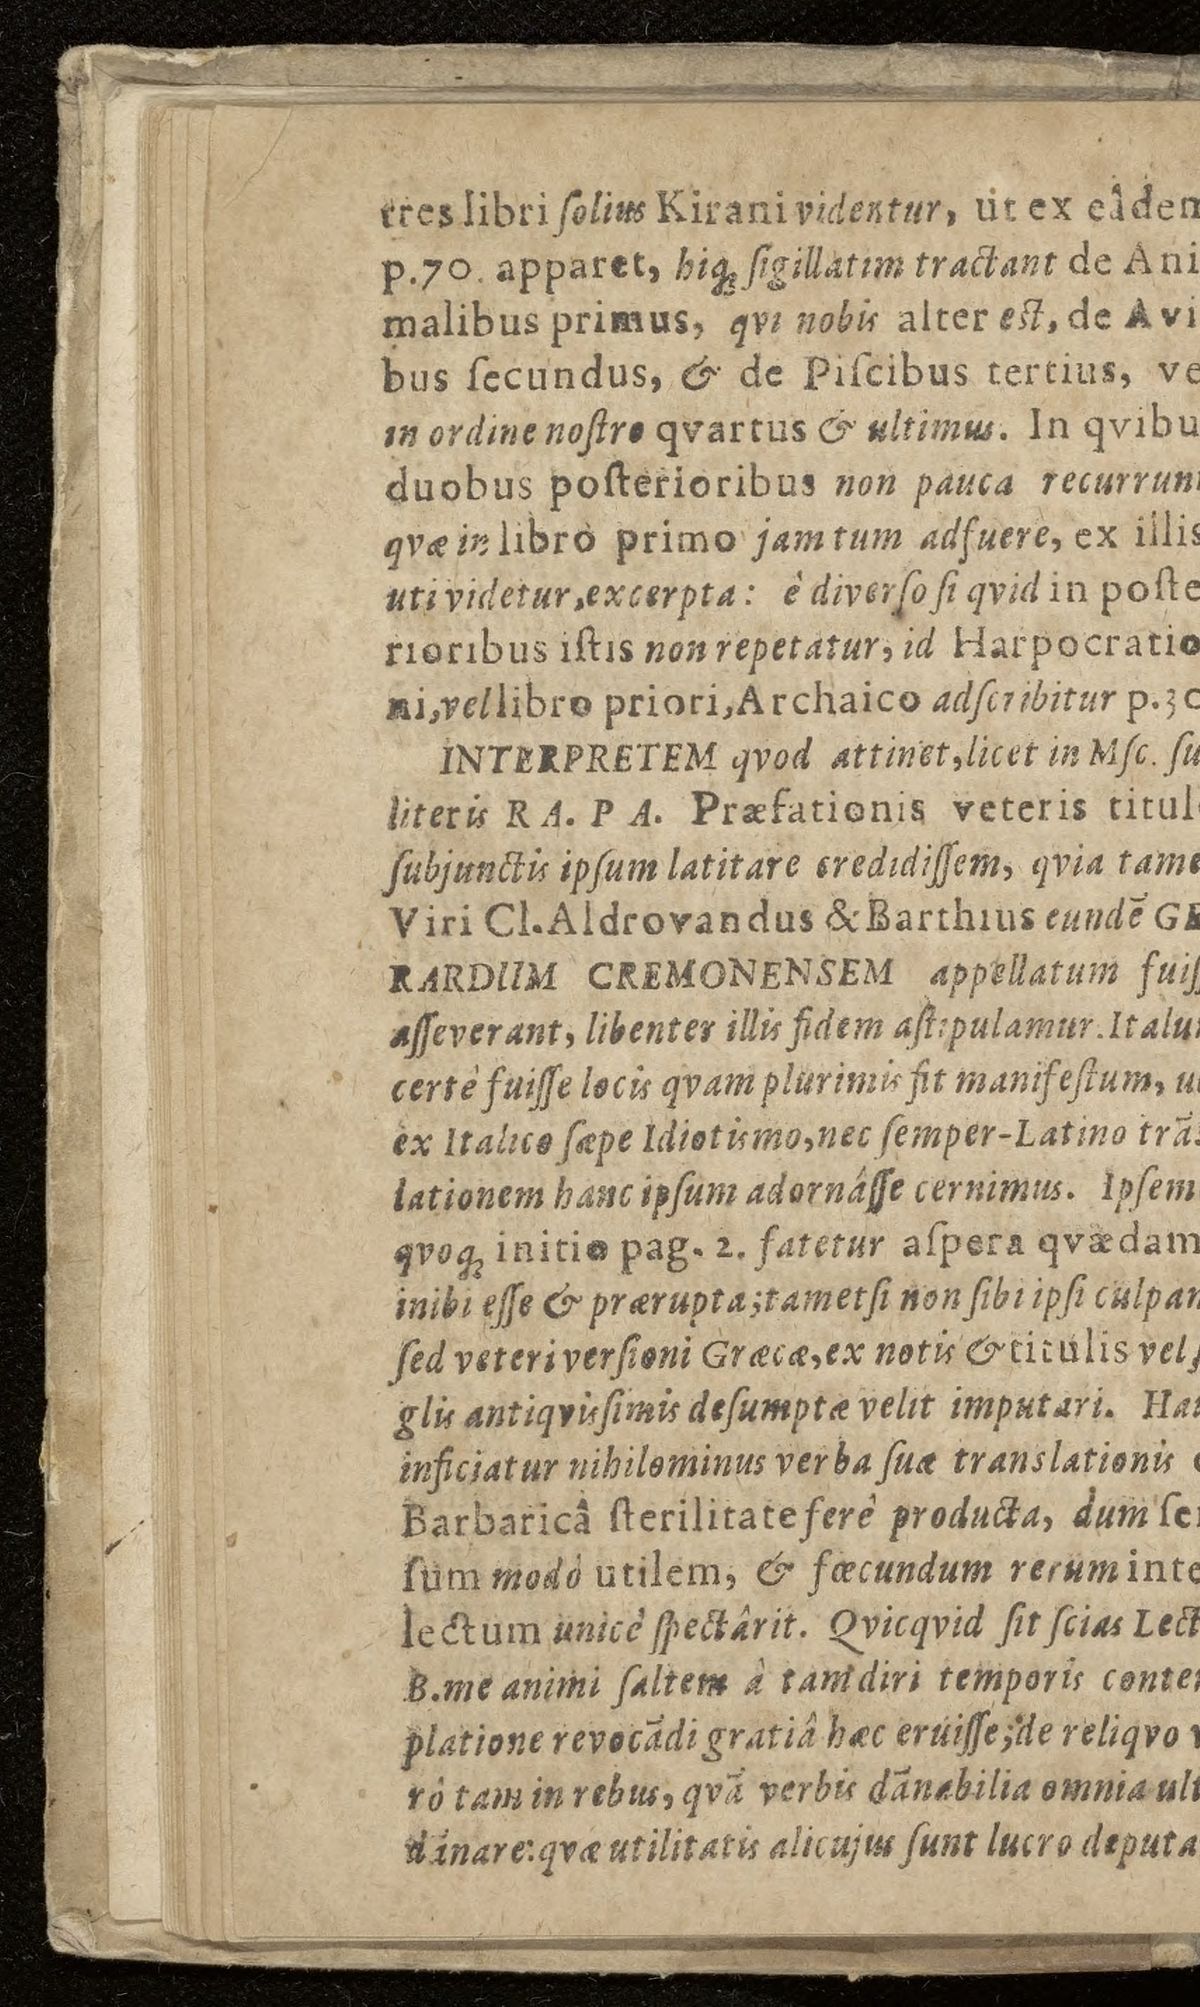 tres libri ſolius Kirani videntur, ut ex eâdem
p.70. apparet, hiq; ſigillatim tractant de Ani
malibus primus, qvi nobis alter eſt, de Avi
bus ſecundus, & de Piſcibus tertius, ve
in ordine noſtro qvartus & ultimus. In qvibu
duobus poſterioribus non pauca recurrunt
qvæ in libro primo jam tum adfuere, ex illis
uti videtur, excerpta: è diverſo ſi qvid in poſte
rioribus iſtis non repetatur, id Harpocratio
ni, vel libro priori, Archaico adſcribitur p.30
INTERPRETEM qvod attinet, licet in Mſc. ſu
literis R A. P A. Præfationis veteris titul
ſubjunctis ipſum latitare credidiſſem, qvia tame
Viri Cl. Aldrovandus & Barthius eundē GE
RARDUM CREMONENSEM appellatum fuiſſ
aſſeverant, libenter illis fidem aſtipulamur. Italu
certè fuiſſe locis qvam plurimis fit manifeſtum, u
ex Italico ſæpe Idiotismo, nec ſemper-Latino trāſ
lationem hanc ipſum adornâſſe cernimus. Ipſem
qvoq; initio pag. 2. fatetur aſpera qvædam
inibi eſſe & prærupta; tametſi non ſibi ipſi culpam
ſed veteri verſioni Græcæ, ex notis & titulis vel
glis antiqviſſimis deſumptæ velit imputari. Hau
inficiatur nihilominus verba ſuæ translationis
Barbaricâ ſterilitate ferè producta, dum ſen
ſum modò utilem, & fœcundum rerum inte
lectum unicè ſpectârit. Qvicqvid ſit ſcias Lect
B. me animi ſaltem à tam diri temporis contem
platione revocādi gratiâ hæc eruiſſe; de reliqvo v
rò tam in rebus, qvā verbis dānabilia omnia ult
dānare: qvæ utilitatis alicujus ſunt lucro deputa